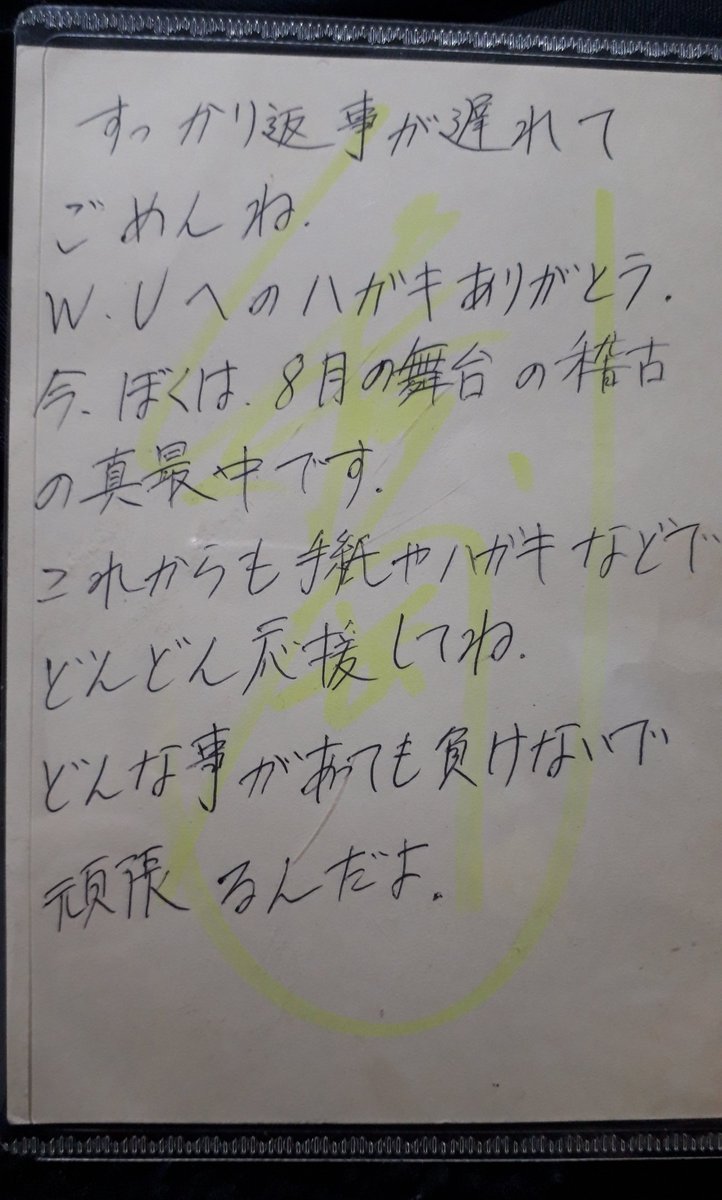 すっかり返事が遅れて
ごめんね.
W.Uへのハガキありがとう.
今、ぼくは、8月の舞台の稽古
の真最中です.
これからも手紙やハガキなどで
どんどん応援してね.
どんな事があっても負けないで
頑張るんだよ.